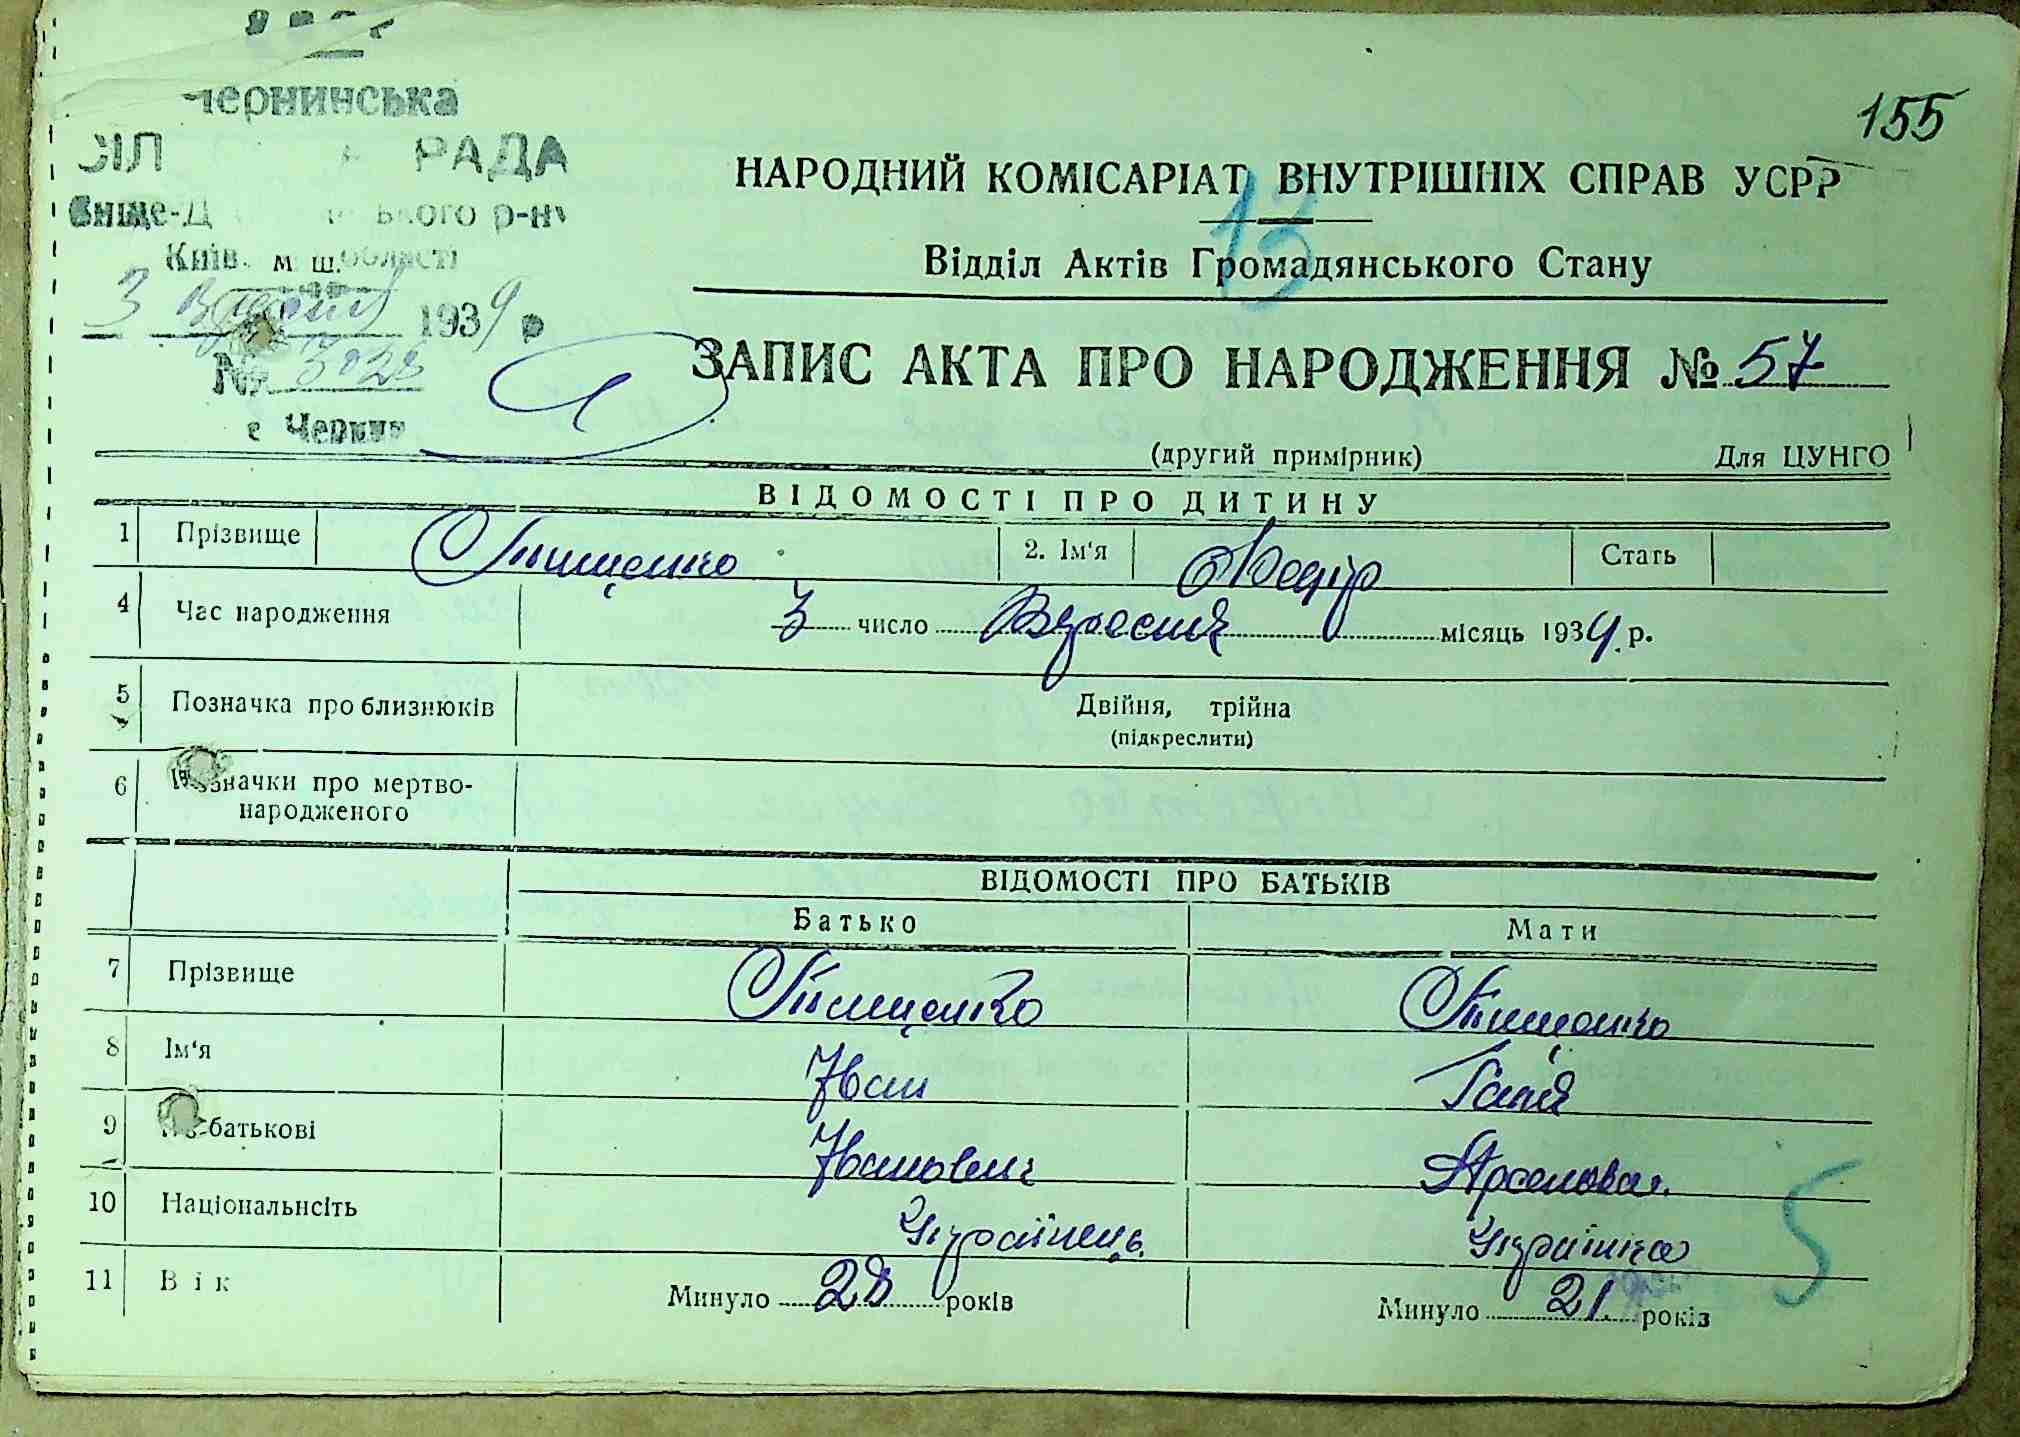 155
Чернинська
РАДА
р-ну
Київ. області
3 Вересня 1934 р
№ 3028
с Чернин
НАРОДНИЙ КОМІСАРІАТ ВНУТРІШНІХ СПРАВ УСРР
13
Відділ Актів Громадянського Стану
ЗАПИС АКТА ПРО НАРОДЖЕННЯ № 57
(другий примірник) Для ЦУНГО
ВІДОМОСТІ ПРО ДИТИНУ
1 Прізвище Пищенко 2. Ім'я Федір Стать
4 Час народження 3 число Вересня місяць 1934 р.
5 Позначка про близнюків Двійня, трійна
(підкреслити)
6 Позначки про мертво-
народженого
ВІДОМОСТІ ПРО БАТЬКІВ
Батько Мати
7 Прізвище Пищенко Пищенко
8 Ім'я Іван Гапія
9 По-батькові Іванович Арсенова
10 Національнсіть Українець Українка
5
11 Вік Минуло 28 років Минуло 21 років